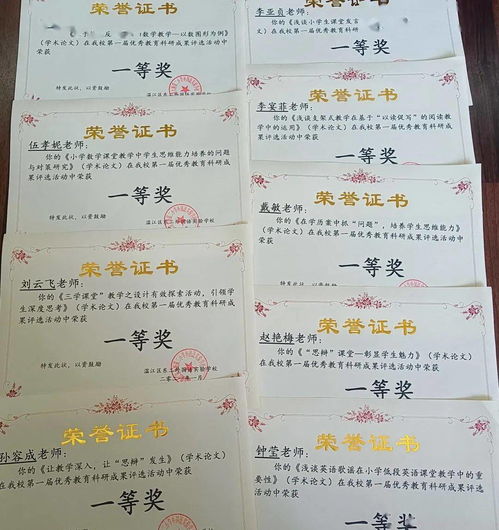 荣誉证书
数学教学—以数图形为例》
（学术论文）在我校第一届优秀教育科研成果评选活动中
荣获
一等奖
特发此状，以资鼓励
荣誉证书
伍孝妮老师：
你的《小学数学课堂教学中学生思维能力培养的问题
与对策研究》（学术论文）在我校第一届优秀教育科研成
果评选活动中荣获
一等奖
特发此状，以资鼓励
荣誉证书
刘云飞老师：
你的《三学课堂”教学之设计有效探索活动，引领学
生深度思考》（学术论文）在我校第一届优秀教育科研成
果评选活动中荣获
一等奖
特发此状，以资鼓励
荣誉证书
孙容成老师：
你的《让教学深入，让“思辩”发生》（学术论文）
在我校第一届优秀教育科研成果评选活动中荣获
一等奖
李亚贞老师：
你的《浅谈小学生课堂发言
文）在我校第一届优秀教育科研成果评选活动中荣获
一等奖
荣誉证书
李宴菲老师：
你的《浅谈支架式教学在基于“以读促写”的阅读教
学中的运用》（学术论文）在我校第一届优秀教育科研成
果评选活动中荣获
一等奖
荣誉证书
戴敏老师：
你的《在学历案中抓“问题”，培养学生思维能力》
（学术论文）在我校第一届优秀教育科研成果评选活动中
荣获
一等奖
荣誉证书
赵艳梅老师：
你的《“思辩”课堂—彰显学生魅力》（学术论文）
在我校第一届优秀教育科研成果评选活动中荣获
一等奖
荣誉证书
钟莹老师：
你的《浅谈英语歌谣在小学低段英语课堂教学中的重
要性》（学术论文）在我校第一届优秀教育科研成果评选
活动中荣获
一等奖